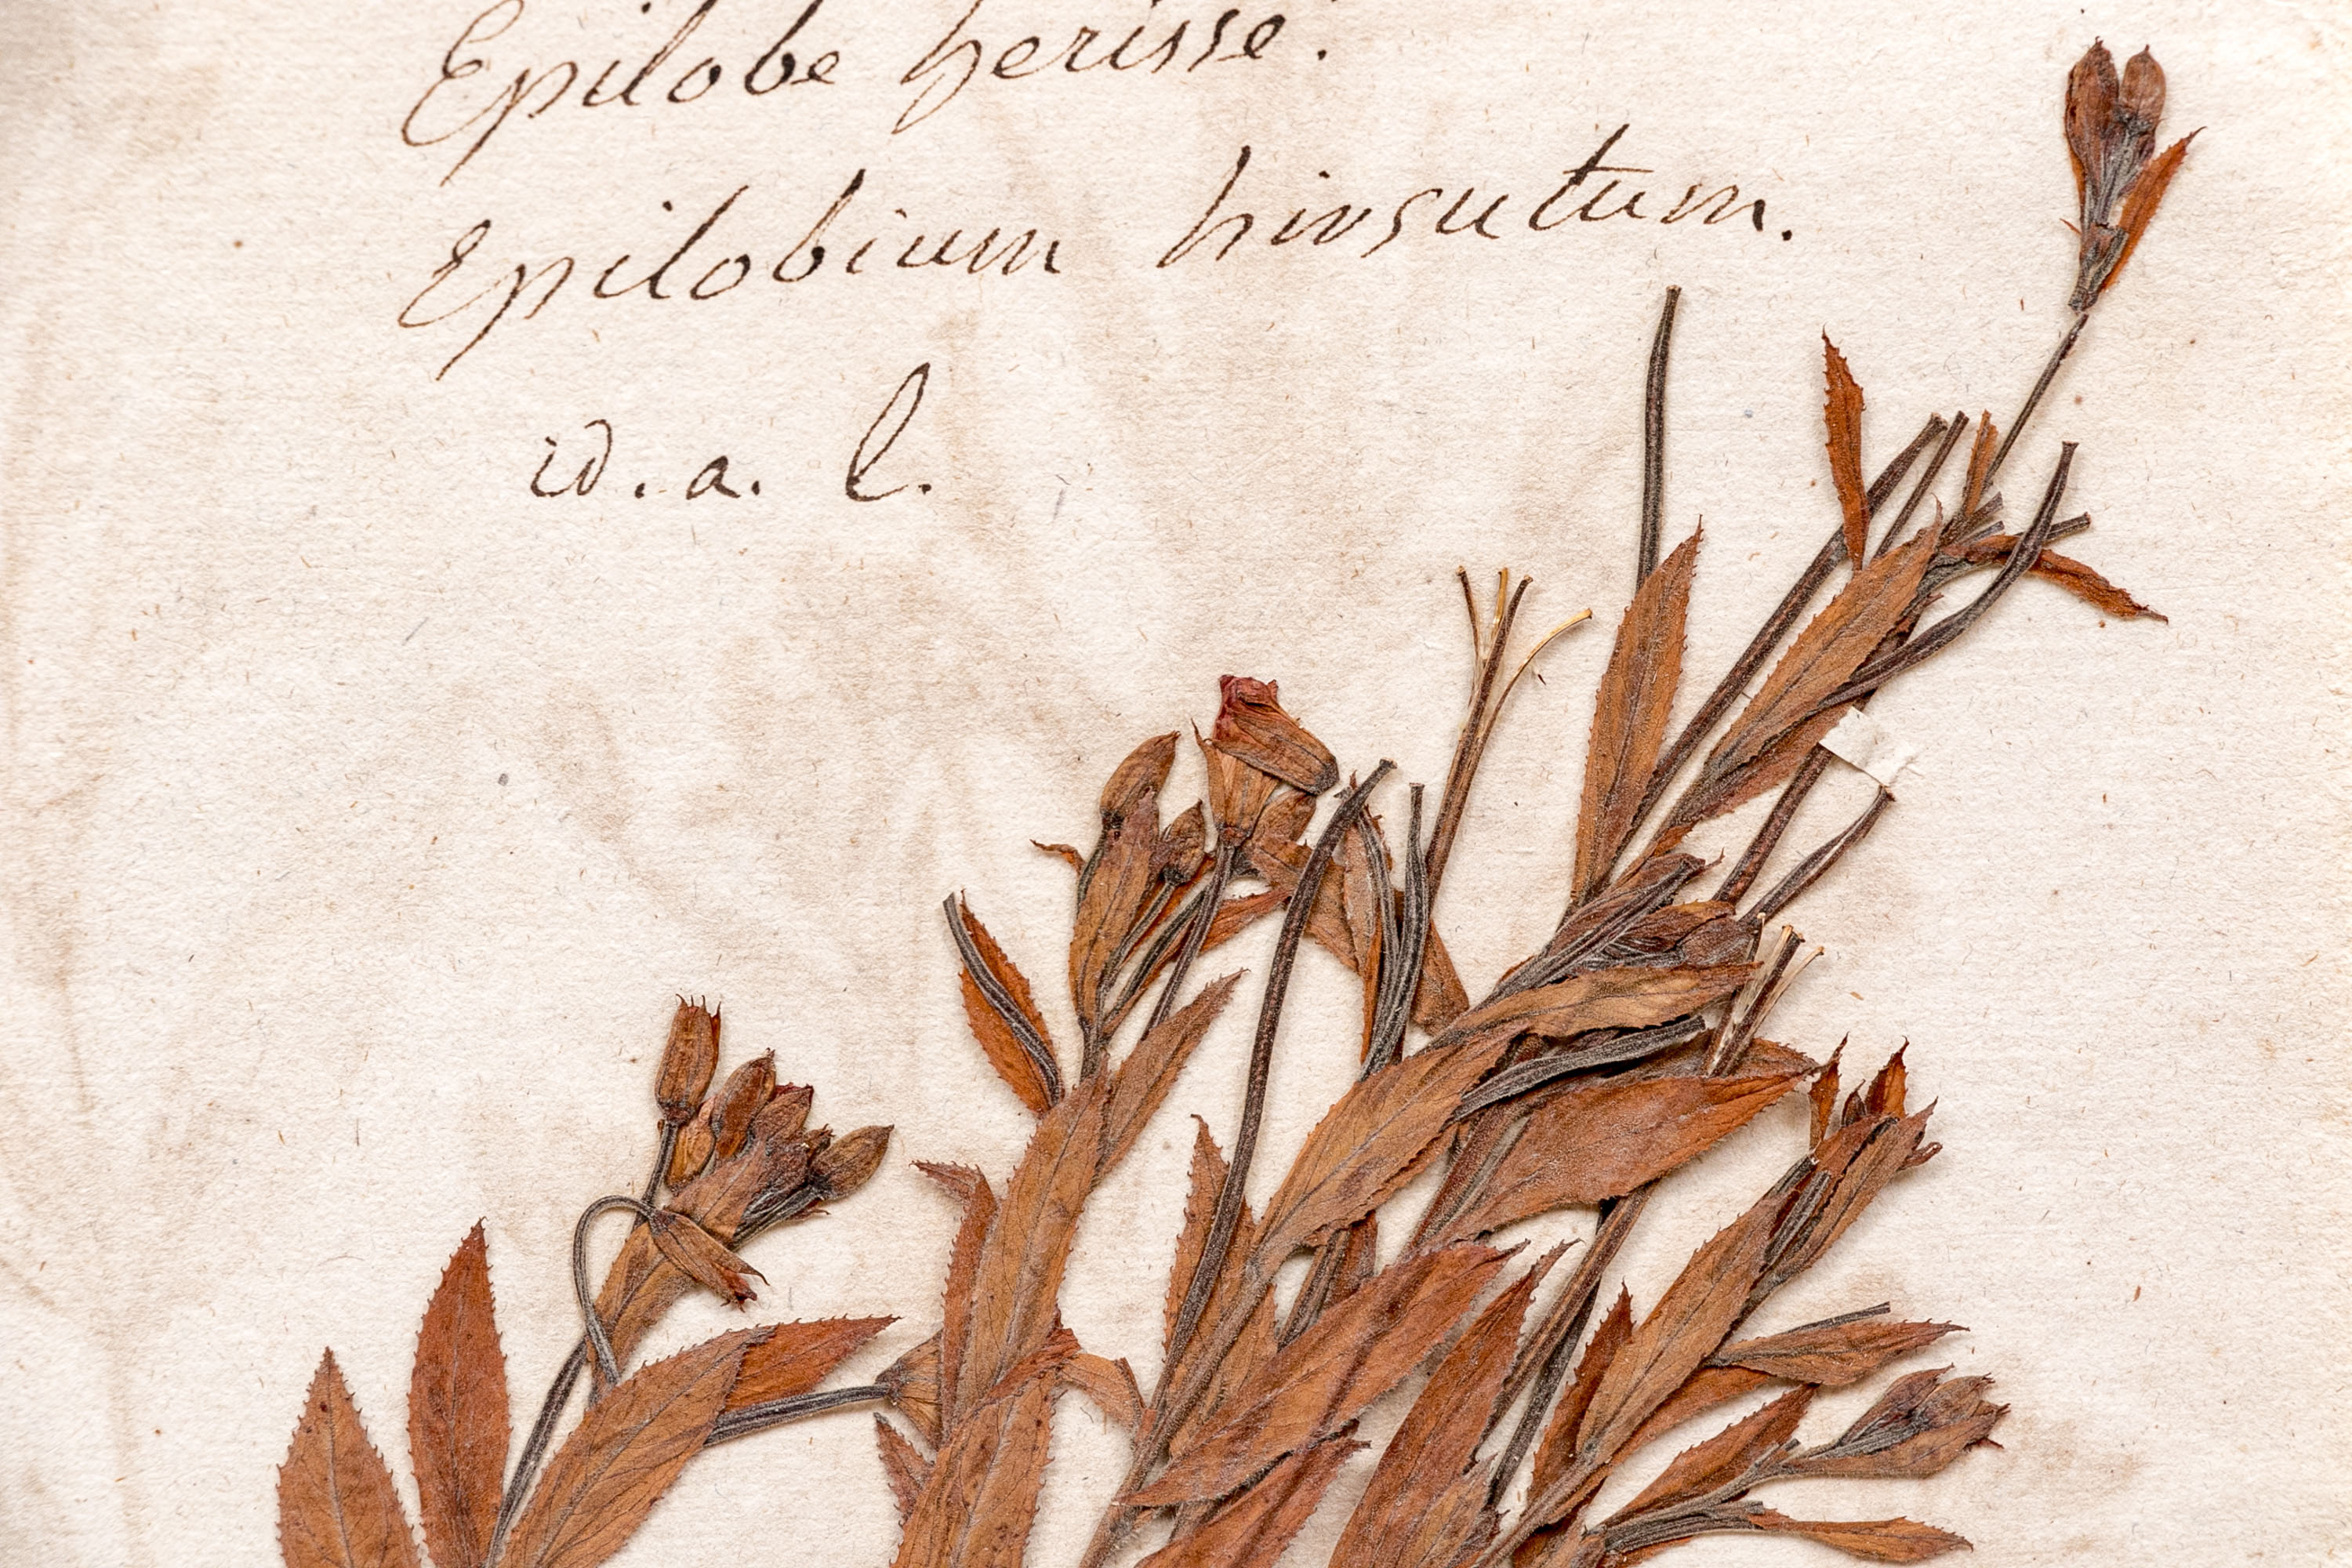 Epilobe herissé.
Epilobium hirsutum.
id. a. l.